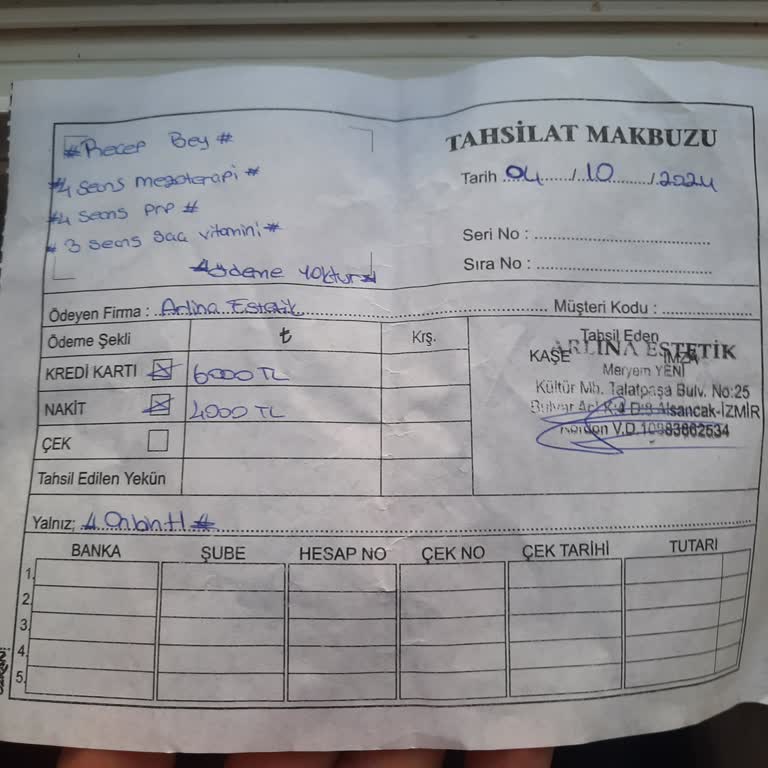 #Recep Bey#
#4 seans mezoterapi#
#4 seans prp#
#3 seans saç vitamini#
#Ödeme yoktur#
TAHSİLAT MAKBUZU
Tarih 04/10/2024
Seri No :
Sıra No :
Ödeyen Firma : Arlina Estetik Müşteri Kodu :
Ödeme Şekli ₺ Krş.
KREDİ KARTI 6000 TL
NAKİT 4000 TL
ÇEK
Tahsil Edilen Yekün
Tahsil Eden
KAŞE İMZA
ARLİNA ESTETİK
Meryem YENİ
Kültür Mh. Talatpaşa Bulv. No:25
Bulvar Apt. K:4 D:8 Alsancak-İZMİR
Kordon V.D.
Yalnız; # Onbin tl #
BANKA ŞUBE HESAP NO ÇEK NO ÇEK TARİHİ TUTARI
1.
2.
3.
4.
5.